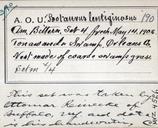 A.O.U. Botaurus lentiginosus 190
Am Bittern, Set of 4 fresh May 14, 1906
Tonawanda Swamp, Orleans Co.
Nest made of coarse swamp grass
Coll #4
This set was taken by
Ottomar Reinecke of
Buffalo, NY and
in his handwriting